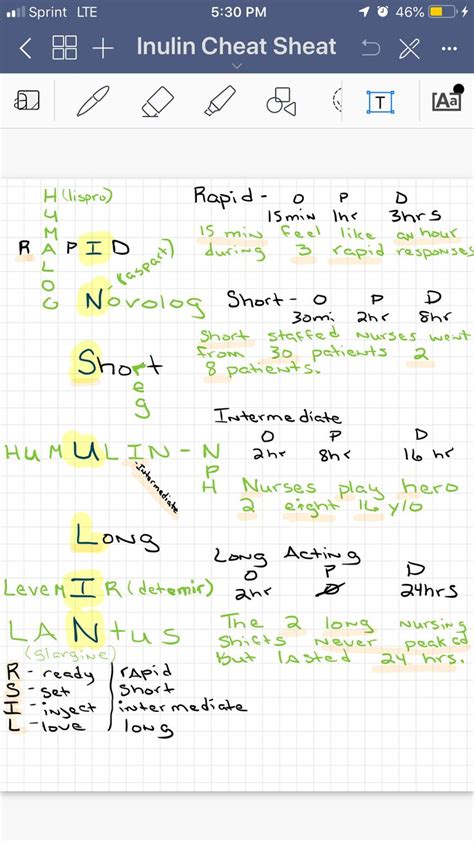 Sprint LTE 5:30 PM 46%
Inulin Cheat Sheat
T Aa
H (lispro) Rapid - O P D
U 15min 1hr 3hrs
M 15 min feel like an hour
RAPID during 3 rapid responses
L (aspart)
O
G Novolog Short - O P D
30mi 2hr 8hr
Short staffed nurses went
from 30 patients 2
Short 8 patients.
e
g
Intermediate
O P D
HUMULIN - N 2hr 8hr 16 hr
P
-Intermediate
H Nurses play hero
2 eight 16 y/o
Long
Long Acting
O P D
LeveMIR (detemir) 2hr Ø 24hrs
LANtus The 2 long nursing
(Glargine) shifts never peaked
But lasted 24 hrs.
R - ready rapid
S - set short
I - inject intermediate
L - love long